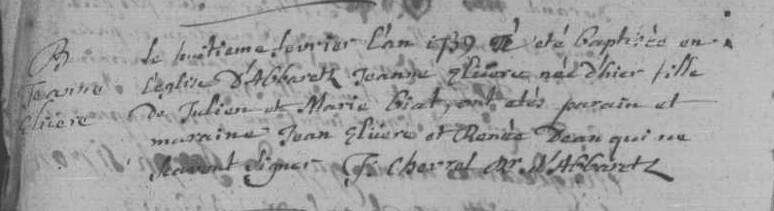 B
Jeanne
Gliere
Le huitieme fevrier l'an 1739 a eté baptisée en
l'eglise d'Abbaretz Jeanne Gliere née d'hier fille
de Julien et Marie Biat, ont etés parain et
maraine Jean Gliere et Renée Dean qui ne
scavent signer F. Cherel Dr d'Abbaretz